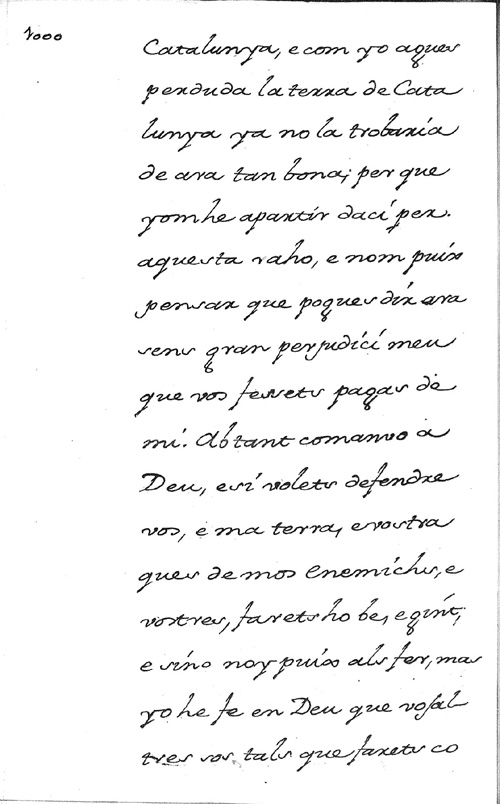 1000
Catalunya, e com yo agues
perduda la terra de Cata
lunya ya no la trobaria
de ara tan bona; per que
yom he apartir daci per.
aquesta raho, e nom puix
pensar que pogues dir ara
sens gran perjudici meu
que vos fessets pagas de
mi. Ab tant comanvo a
Deu, e si volets defendre
vos, e ma terra, e vostra
ques de mos Enemichs, e
vostres, farets ho be, e gint,
e sino noy puix als fer, mas
yo he fe en Deu que vosal
tres sos tals que farets co